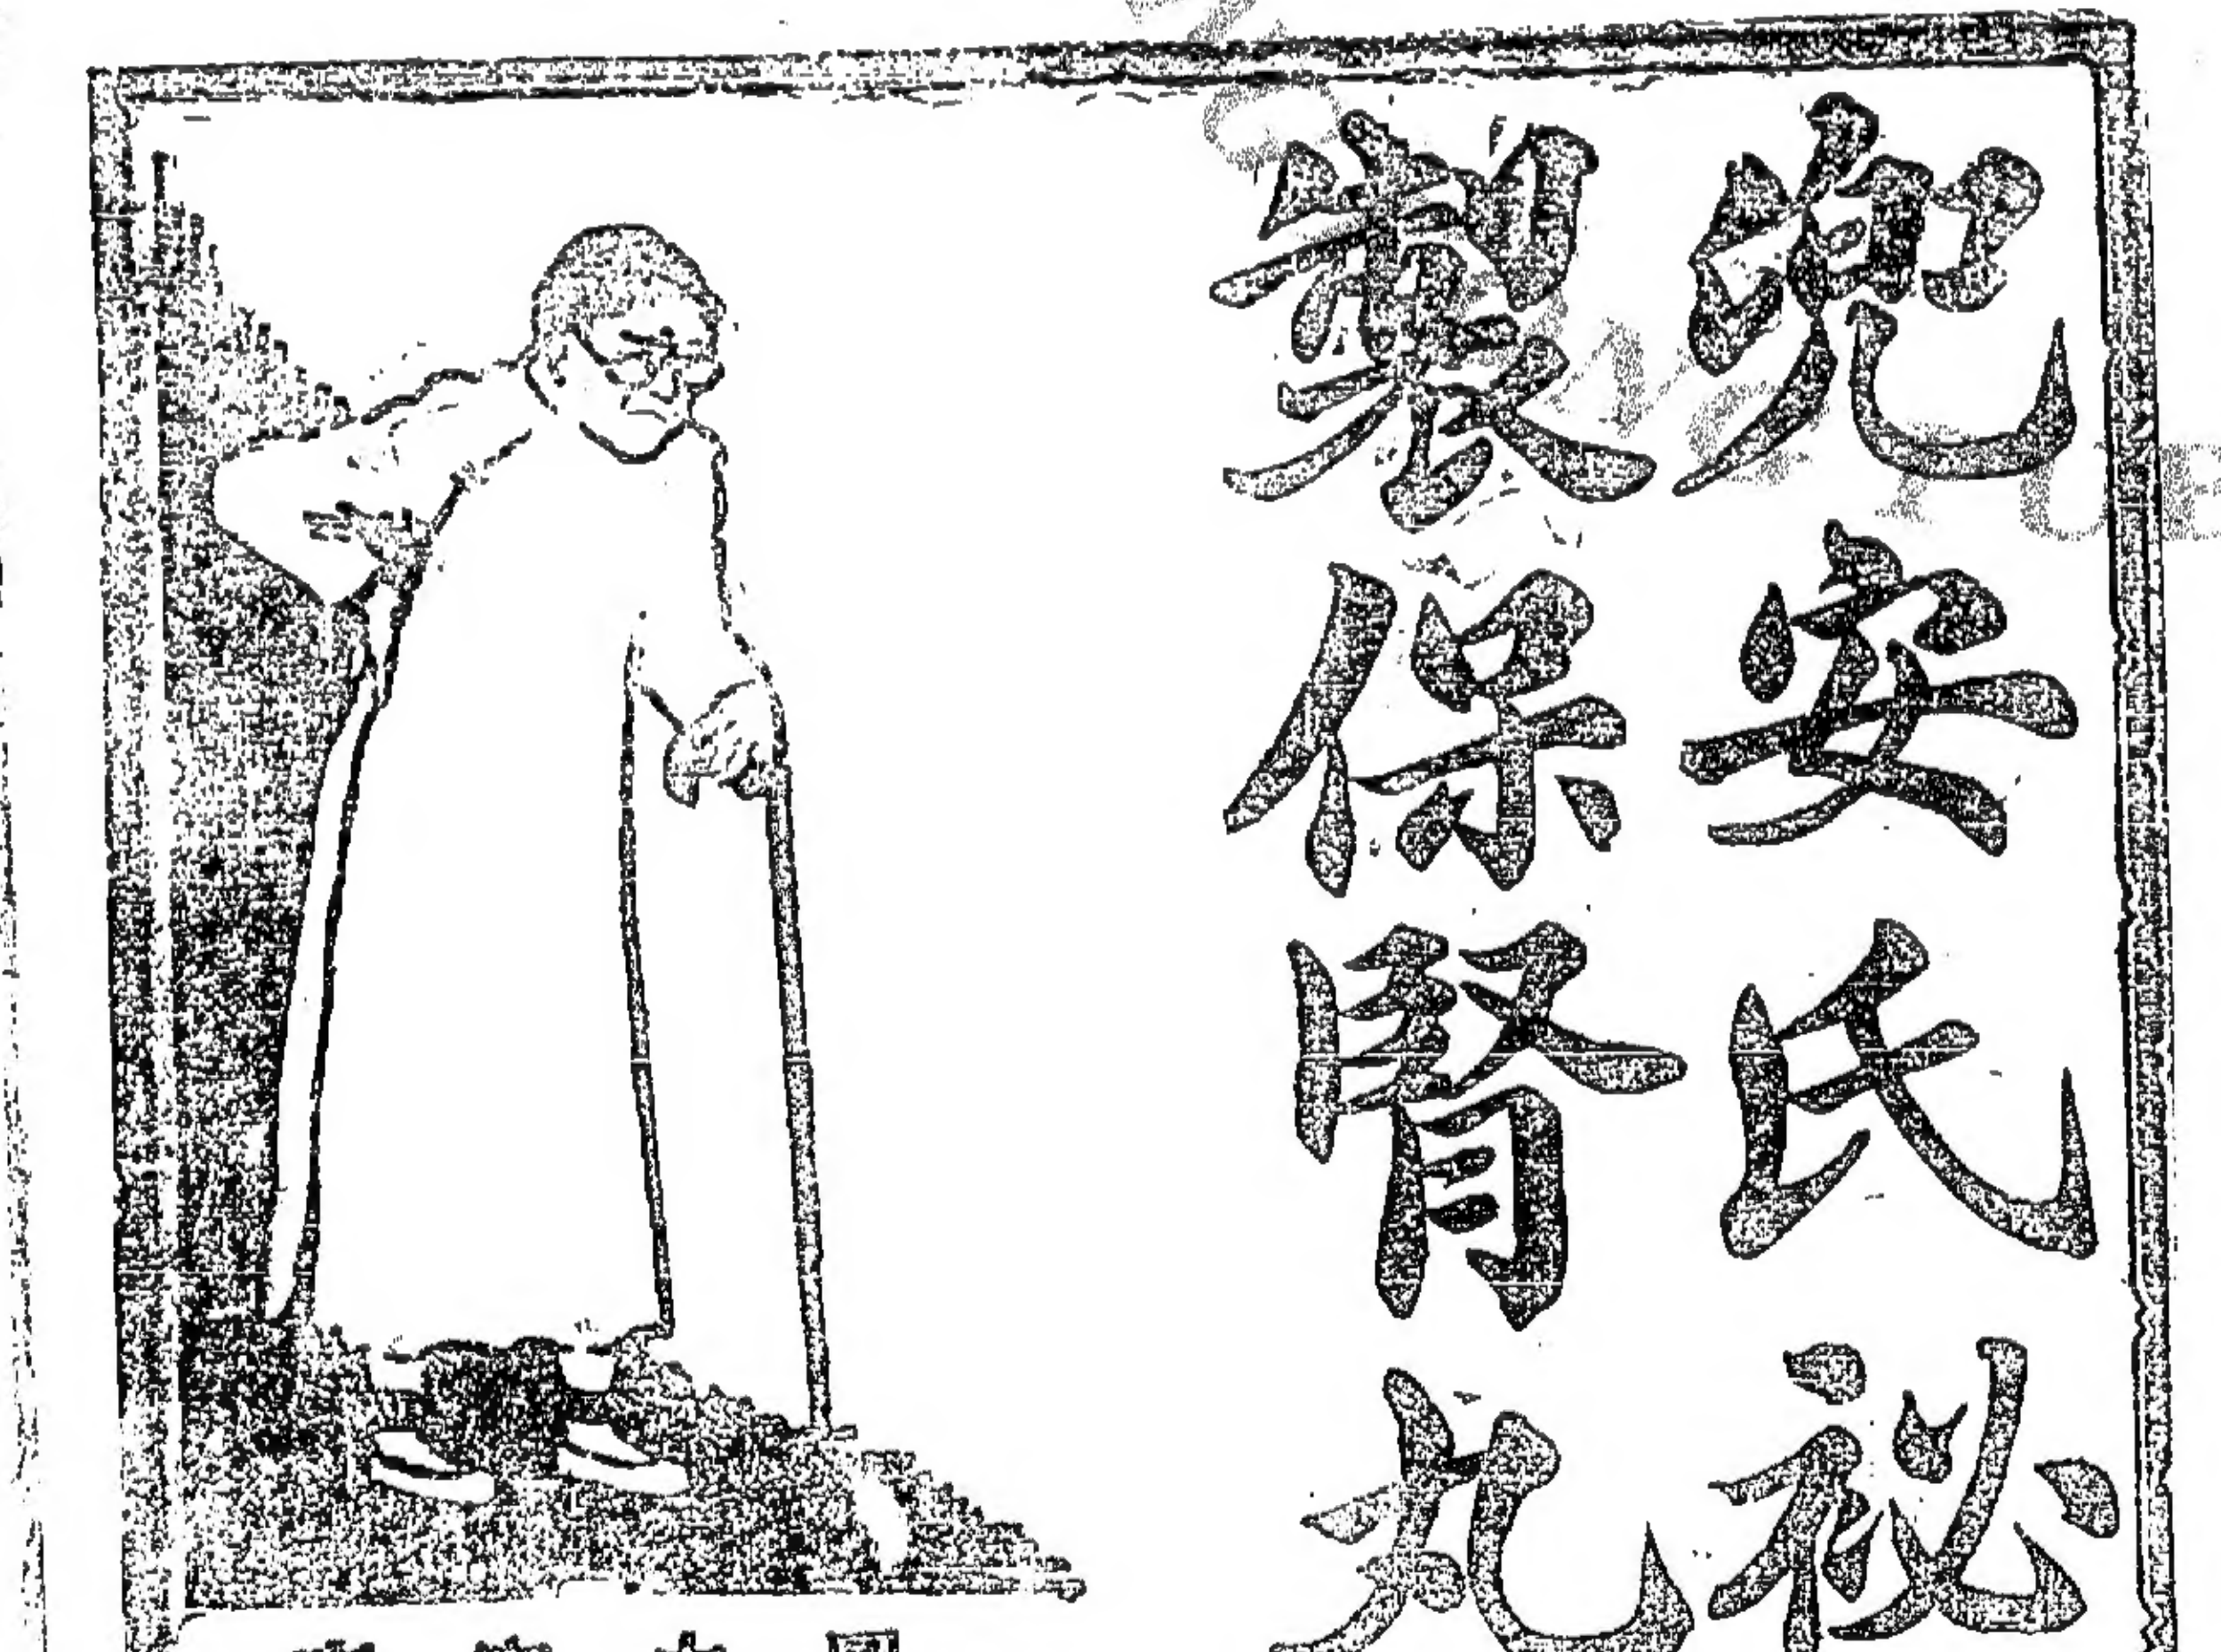 兜安氏秘
製保腎丸